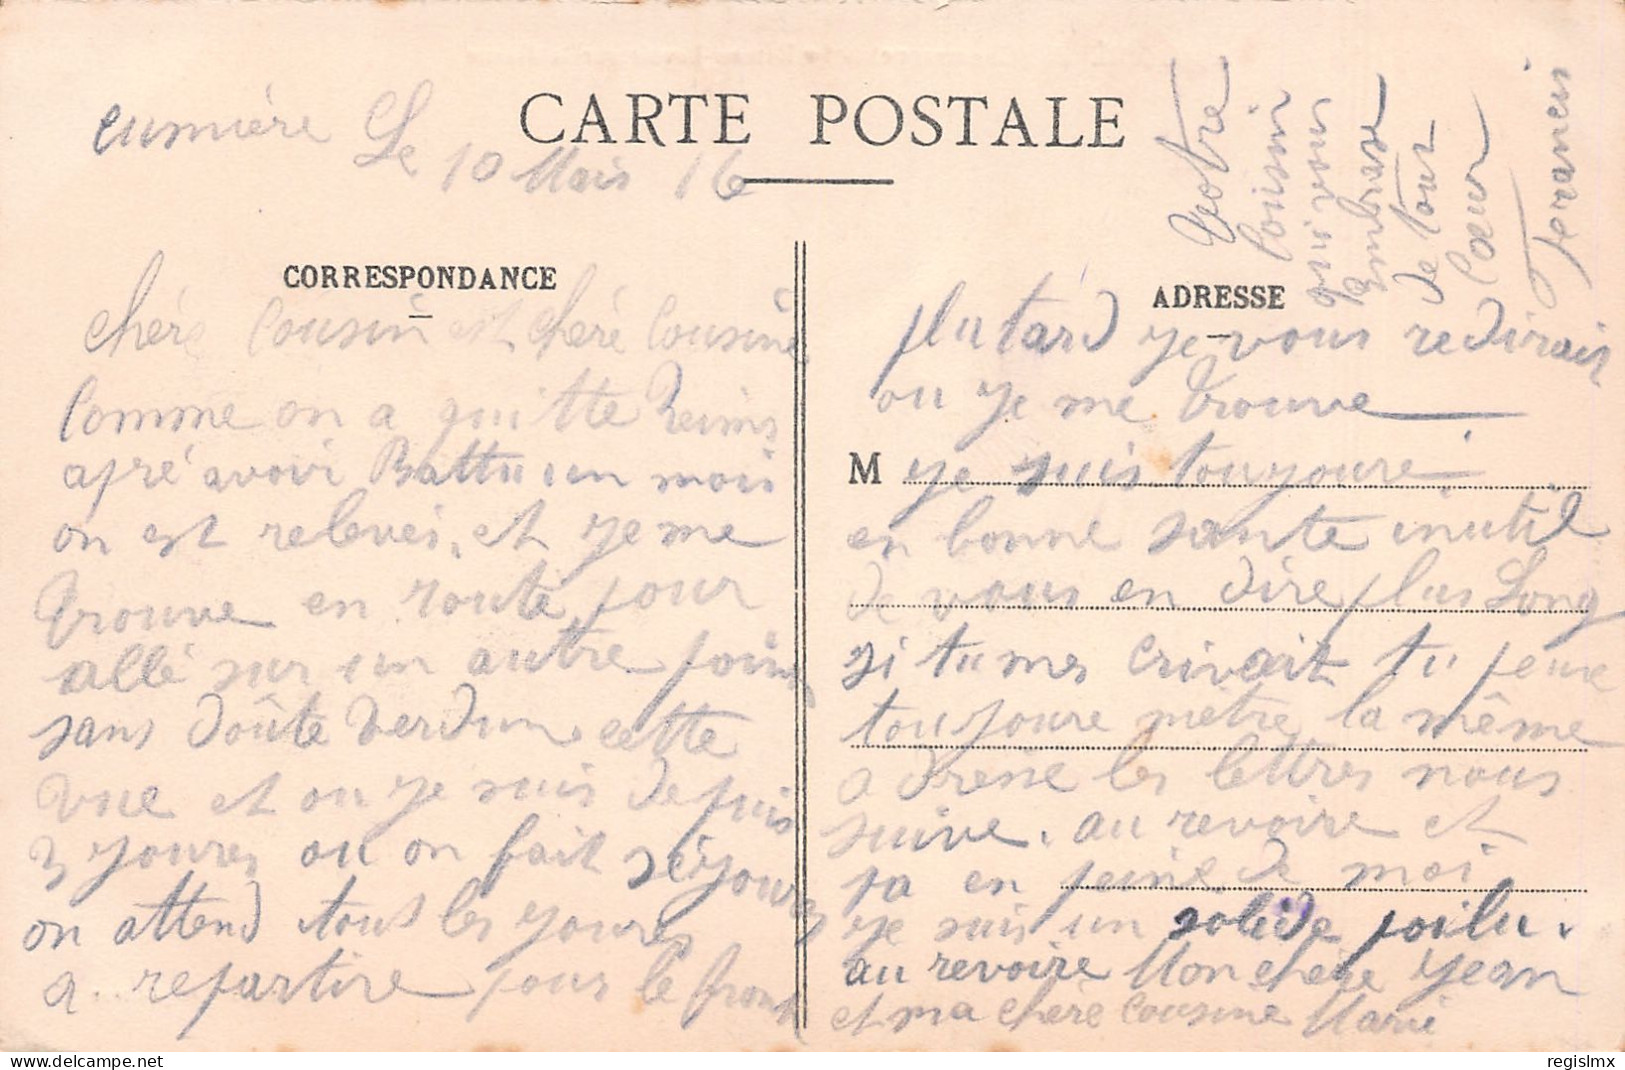 CARTE POSTALE
cumière Le 10 Mais 16
CORRESPONDANCE
chére Cousin et cheré Cousine
Comme on a quitte Reims
apré avoir Battu un mois
on est relevés, et ye me
trouve en route pour
allé sur un autre poins
sans doûte Verdun, cette
vue et ou ye suis depuis
3 youres ou on fait séyoures
on attend tous les youres
a repartire pour le front
ADRESSE
plu tard ye vous redirais
ou ye me trouve
M ye suis touyoure
en bonne sante inutil
de vous en dire plus Long
si tu mes crivait tu peux
toujoure mètre la même
adresse les lettres nous
suive. au revoire et
pa en peine de moi
ye suis un solide poilu.
au revoire Mon chere yean
et ma chère cousine Marie
Votre
Cousin
qui vous
embrasse
de tous
Cœur
Francis
regislmx